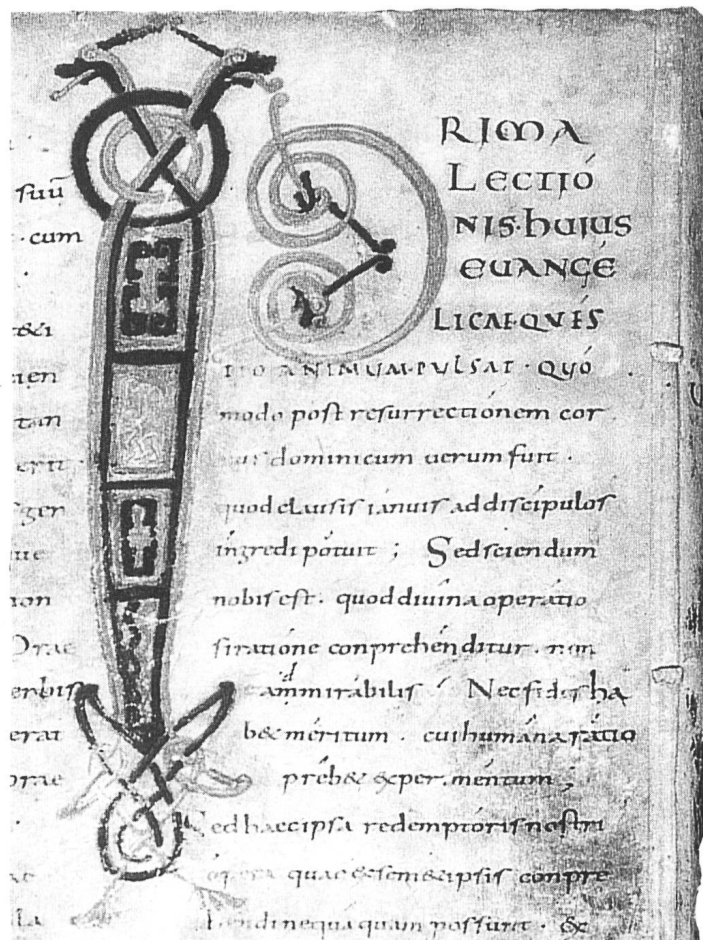 suū
· cum
tan
erit·
ger
ue
non
Orae
erbis
erat
orae
la
PRIMA
LECTIÓ
NIS·huius
EUANGE
LICAE·QUES
TIO ANIMUM·PULSAT· QUÓ
modo post resurrectiónem cor
pus dominicum uerum fuit·
quod clausis ianuis ad discípulos
íngredi pótuit ; Sed sciendum
nobis est· quod diuina operátio
si ratióne conprehénditur· non
d
ammirábilis Nec fides ha
b& méritum· cui humána rátio
préb& experimentum ;
Sed haec ipsa redemptóris nostri
ópera quae ex sem&ipsis conpre
hendi nequaquam possunt· &